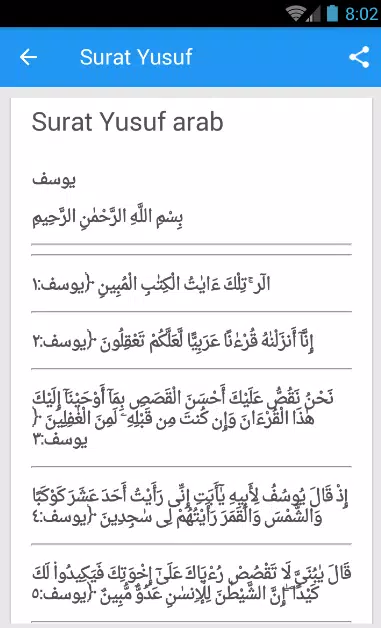 8:02
Surat Yusuf
Surat Yusuf arab
يوسف
بِسْمِ اللَّهِ الرَّحْمٰنِ الرَّحِيمِ
الٓر ۚ تِلْكَ ءَايٰتُ الْكِتٰبِ الْمُبِينِ ﴿يوسف:١
إِنَّآ أَنزَلْنٰهُ قُرْءٰنًا عَرَبِيًّا لَّعَلَّكُمْ تَعْقِلُونَ ﴿يوسف:٢
نَحْنُ نَقُصُّ عَلَيْكَ أَحْسَنَ الْقَصَصِ بِمَآ أَوْحَيْنَآ إِلَيْكَ
هٰذَا الْقُرْءَانَ وَإِن كُنتَ مِن قَبْلِهِۦ لَمِنَ الْغٰفِلِينَ ﴿
يوسف:٣
إِذْ قَالَ يُوسُفُ لِأَبِيهِ يٰٓأَبَتِ إِنِّى رَأَيْتُ أَحَدَ عَشَرَ كَوْكَبًا
وَالشَّمْسَ وَالْقَمَرَ رَأَيْتُهُمْ لِى سٰجِدِينَ ﴿يوسف:٤
قَالَ يٰبُنَىَّ لَا تَقْصُصْ رُءْيَاكَ عَلَىٰٓ إِخْوَتِكَ فَيَكِيدُوا۟ لَكَ
كَيْدًا ۖ إِنَّ الشَّيْطٰنَ لِلْإِنسٰنِ عَدُوٌّ مُّبِينٌ ﴿يوسف:٥